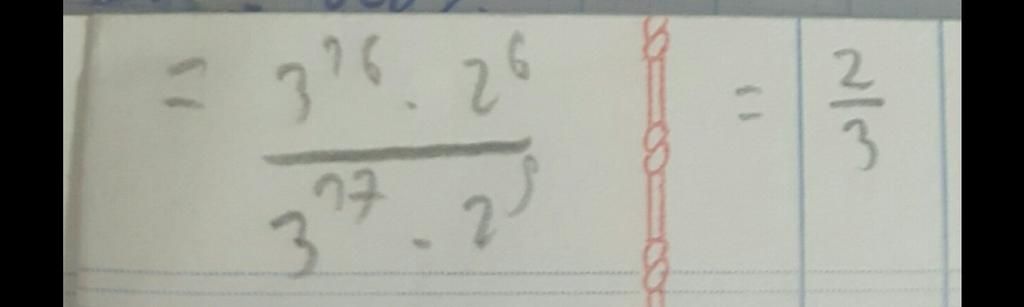 = 3^16 · 2^6 / 3^17 · 2^5 = 2/3